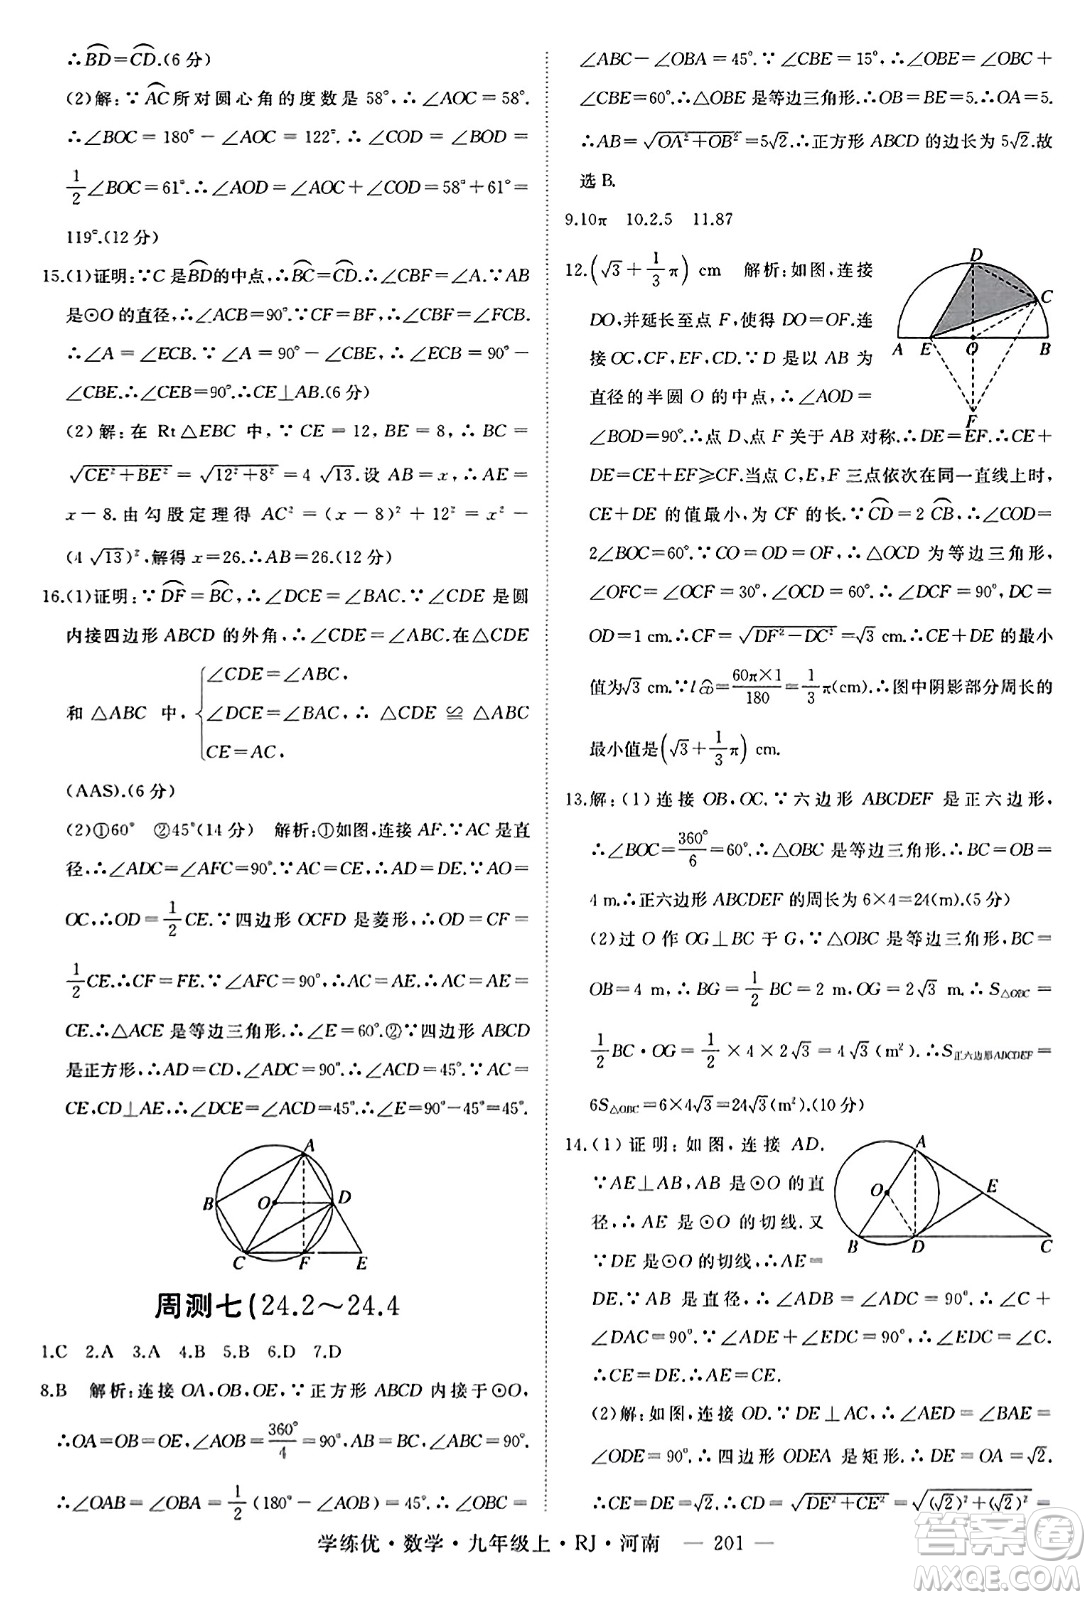 ∴BD=CD.(6分)
(2)解:∵AC所对圆心角的度数是58°,∴∠AOC=58°.
∴∠BOC=180°-∠AOC=122°.∴∠COD=∠BOD=
1/2∠BOC=61°.∴∠AOD=∠AOC+∠COD=58°+61°=
119°.(12分)
15.(1)证明:∵C是BD的中点,∴BC=CD.∴∠CBF=∠A.∵AB
是⊙O的直径,∴∠ACB=90°.∵CF=BF,∴∠CBF=∠FCB.
∴∠A=∠ECB.∵∠A=90°-∠CBE,∴∠ECB=90°-
∠CBE.∴∠CEB=90°.∴CE⊥AB.(6分)
(2)解:在Rt△EBC中,∵CE=12,BE=8,∴BC=
√(CE²+BE²)=√(12²+8²)=4√13.设AB=x,∴AE=
x-8.由勾股定理得AC²=(x-8)²+12²=x²-
(4√13)²,解得x=26.∴AB=26.(12分)
16.(1)证明:∵DF=BC,∴∠DCE=∠BAC.∵∠CDE是圆
内接四边形ABCD的外角,∴∠CDE=∠ABC.在△CDE
和△ABC中,{∠CDE=∠ABC,
∠DCE=∠BAC,∴△CDE≌△ABC
CE=AC,
(AAS).(6分)
(2)①60° ②45°(14分) 解析:①如图,连接AF.∵AC是直
径,∴∠ADC=∠AFC=90°.∵AC=CE,∴AD=DE.∵AO=
OC,∴OD=1/2CE.∵四边形OCFD是菱形,∴OD=CF=
1/2CE.∴CF=FE.∵∠AFC=90°,∴AC=AE.∴AC=AE=
CE.∴△ACE是等边三角形.∴∠E=60°.②∵四边形ABCD
是正方形,∴AD=CD,∠ADC=90°.∴∠ACD=45°.∵AC=
CE,CD⊥AE,∴∠DCE=∠ACD=45°.∴∠E=90°-45°=45°.
A
B
O
D
C
F
E
周测七(24.2~24.4
1.C 2.A 3.A 4.B 5.B 6.D 7.D
8.B 解析:连接OA,OB,OE,∵正方形ABCD内接于⊙O,
∴OA=OB=OE,∠AOB=360°/4=90°,AB=BC,∠ABC=90°.
∴∠OAB=∠OBA=1/2(180°-∠AOB)=45°.∴∠OBC=
∠ABC-∠OBA=45°.∵∠CBE=15°,∴∠OBE=∠OBC+
∠CBE=60°.∴△OBE是等边三角形.∴OB=BE=5.∴OA=5.
∴AB=√(OA²+OB²)=5√2.∴正方形ABCD的边长为5√2.故
选B.
9.10π 10.2.5 11.87
12.(√3+1/3π) cm 解析:如图,连接
DO,并延长至点F,使得DO=OF.连
接OC,CF,EF,CD.∵D是以AB为
直径的半圆O的中点,∴∠AOD=
∠BOD=90°.∴点D、点F关于AB对称.∴DE=EF.∴DE+
CE=CE+EF≥CF.当点C,E,F三点依次在同一直线上时,
CE+DE的值最小,为CF的长.∵CD=2CB,∴∠COD=
2∠BOC=60°.∵CO=DO=OF,∴△OCD为等边三角形,
∠OFC=∠OCF=30°,∠OCD=60°.∴∠DCF=90°,DC=
OD=1cm.∴CF=√(DF²-DC²)=√3 cm.∴CE+DE的最小
值为√3 cm.∵l CD=60π×1/180=1/3π(cm).∴图中阴影部分周长的
最小值是(√3+1/3π) cm.
D
C
A
E
O
B
F
13.解:(1)连接OB,OC.∵六边形ABCDEF是正六边形,
∴∠BOC=360°/6=60°.∴△OBC是等边三角形.∴BC=OB=
4 m.∴正六边形ABCDEF的周长为6×4=24(m).(5分)
(2)过O作OG⊥BC于G,∵△OBC是等边三角形,BC=
OB=4 m,∴BG=1/2BC=2 m,OG=2√3 m.∴S△OBC=
1/2BC·OG=1/2×4×2√3=4√3(m²).∴S正六边形ABCDEF=
6S△OBC=6×4√3=24√3(m²).(10分)
14.(1)证明:如图,连接AD.
∵AE⊥AB,AB是⊙O的直
径,∴AE是⊙O的切线.又
∵DE是⊙O的切线,∴AE=
DE.∴∠EAD=∠EDA.∵AB是直径,∴∠ADB=∠ADC=90°.∴∠C+
∠DAC=90°.∵∠ADE+∠EDC=90°,∴∠EDC=∠C.
∴CE=DE.∴AE=CE.(7分)
(2)解:如图,连接OD.∵DE⊥AC,∴∠AED=∠BAE=
∠ODE=90°.∴四边形ODEA是矩形.∴DE=OA=√2.
∴CE=AE=DE=√2.∴CD=√(DE²+CE²)=√((√2)²+(√2)²)=
A
O
E
B
D
C
学练优·数学·九年级上·RJ·河南 — 201 —
答案圈
MXQE.COM